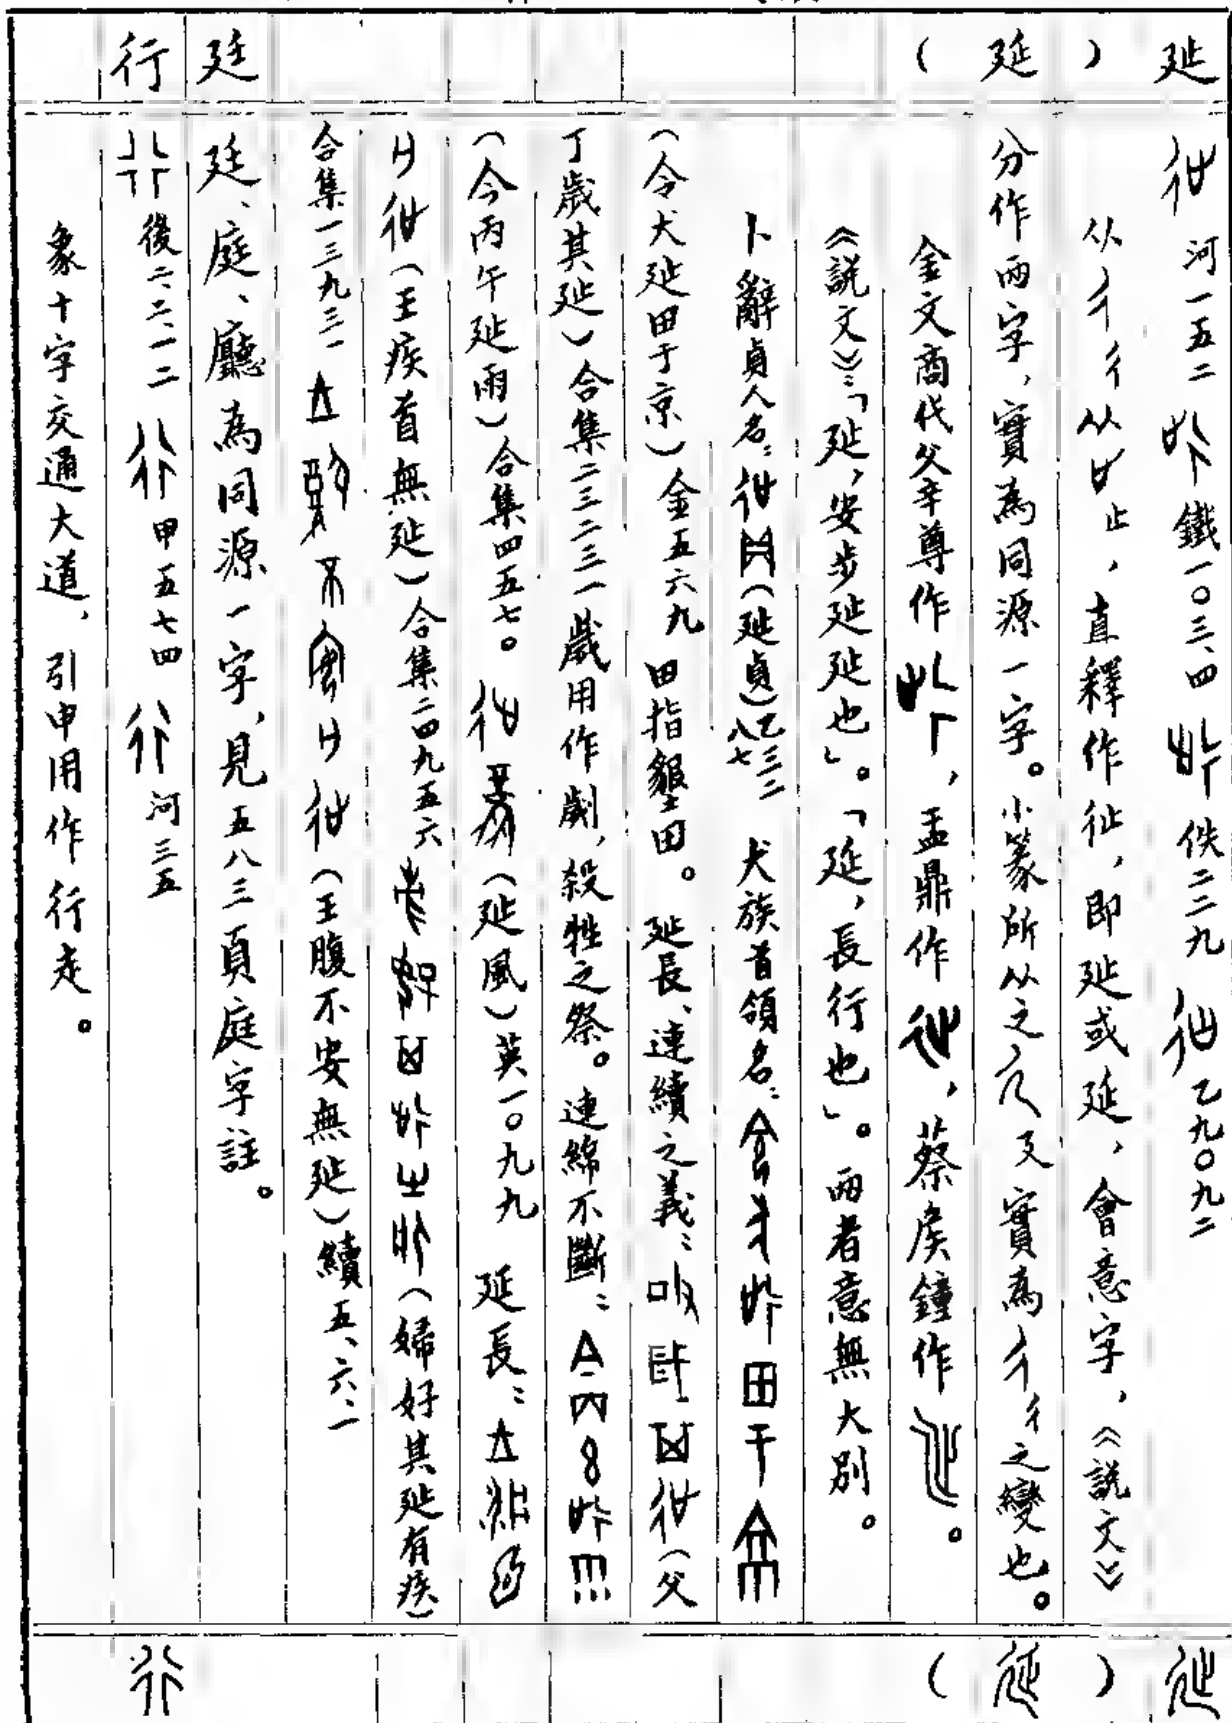 㢟（延）廷行
河一五二 鐵一〇三、四 佚二二九 乙九〇九二
从彳彳从止，直釋作㣔，即㢟或延，會意字，《說文》
分作兩字，實為同源一字。小篆所从之廴實為彳彳之變也。
金文商代父辛尊作，盂鼎作，蔡侯鐘作。
《說文》：「㢟，安步㢟㢟也」。「延，長行也」。兩者意無大別。
卜辭貞人名：（㢟貞）乙三三八七 犬族首領名：
（令犬㢟田于京）金五六九 田指墾田。 延長、連續之義：（父
丁歲其㢟）合集二三二三一歲用作劌，殺牲之祭。連綿不斷：
（今丙午㢟雨）合集四五七〇 （㢟風）英一〇九九 延長：
（王疾首無㢟）合集二四九五六 （婦好其㢟有疾）
合集一三九三一 （王腹不安無㢟）續五、六、一
廷、庭、廳為同源一字，見五八三頁庭字註。
後二、二、一二 甲五七四 河三五
象十字交通大道，引申用作行走。